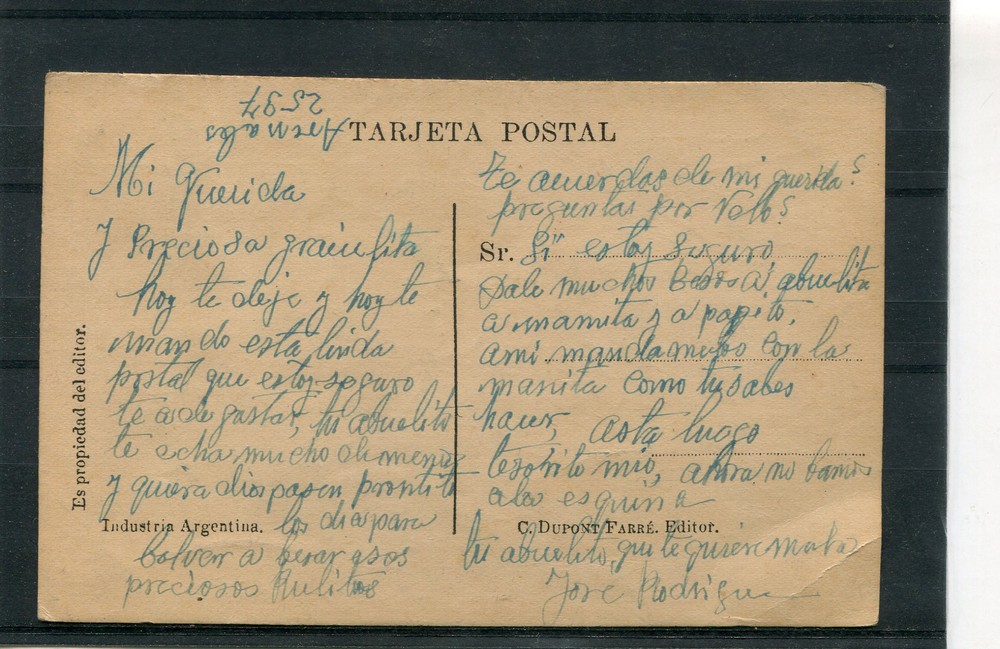 Arenales
2597
TARJETA POSTAL
Mi Querida
y Preciosa
hoy te deje y hoy te
mando esta linda
postal que estoy seguro
te a de gustar, tu abuelito
te echa mucho de menos
y quiera dios pasen prontito
los dia para
bolver a besar esos
preciosos Rulitos
Te acuerdas de mi querida?
preguntas por Velo?
Sr. Si estoy seguro
Dale muchos besos a abuelita
a mamita y a papito,
a mi mandame con la
manita como tu sabes
hacer, asta luego
tesorito mio, ahora no bamos
a la esquina
tu abuelito, que te quiere mucho
Jose Rodrigue
Es propiedad del editor.
Industria Argentina.
C. DUPONT FARRÉ. Editor.